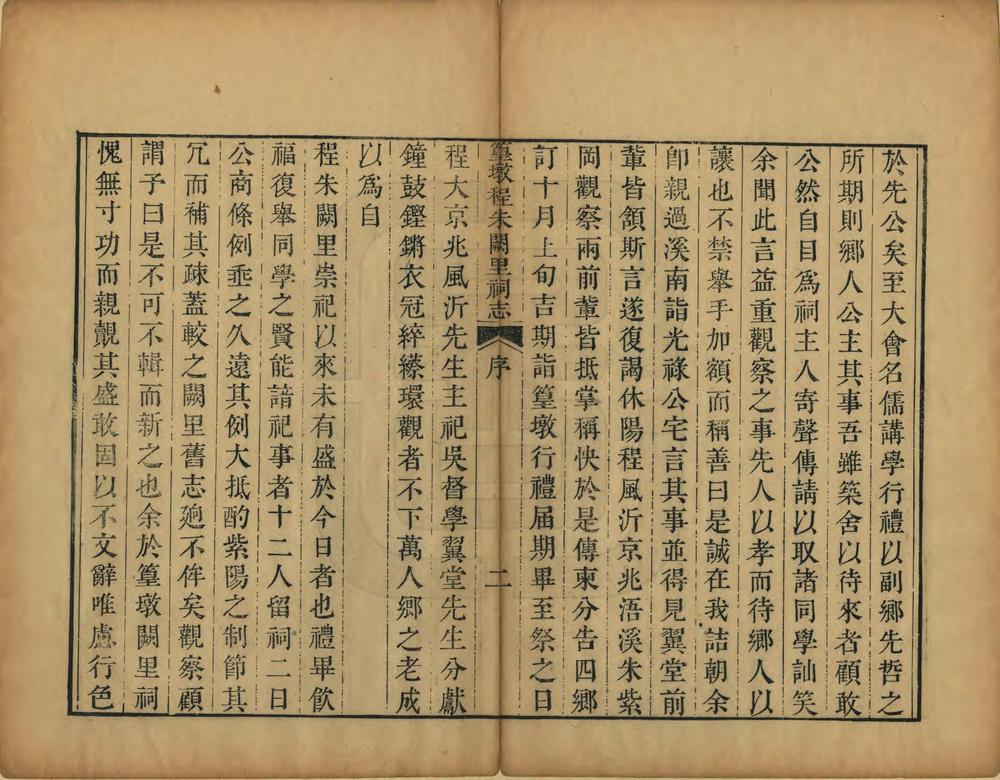 於先公矣至大會名儒講學行禮以副鄉先哲之
所期則鄉人公主其事吾雖築舍以待來者顧敢
公然自目爲祠主人寄聲傳請以取諸同學訕笑
余聞此言益重觀察之事先人以孝而待鄉人以
讓也不禁舉手加額而稱善曰是誠在我詰朝余
卽親過溪南詣光祿公宅言其事並得見翼堂前
輩皆頷斯言遂復謁休陽程風沂京兆浯溪朱紫
岡觀察兩前輩皆抵掌稱快於是傳柬分告四鄉
訂十月上旬吉期詣篁墩行禮届期畢至祭之日
篁墩程朱闕里祠志
序
二
程大京兆風沂先生主祀吳督學翼堂先生分獻
鐘鼓鏗鏘衣冠綷縩環觀者不下萬人鄉之老成
以爲自
程朱闕里崇祀以來未有盛於今日者也禮畢飮
福復舉同學之賢能諳祀事者十二人留祠二日
公商條例垂之久遠其例大抵酌紫陽之制節其
冗而補其疎蓋較之闕里舊志逈不侔矣觀察顧
謂予曰是不可不輯而新之也余於篁墩闕里祠
愧無寸功而親覩其盛敢固以不文辭唯慮行色